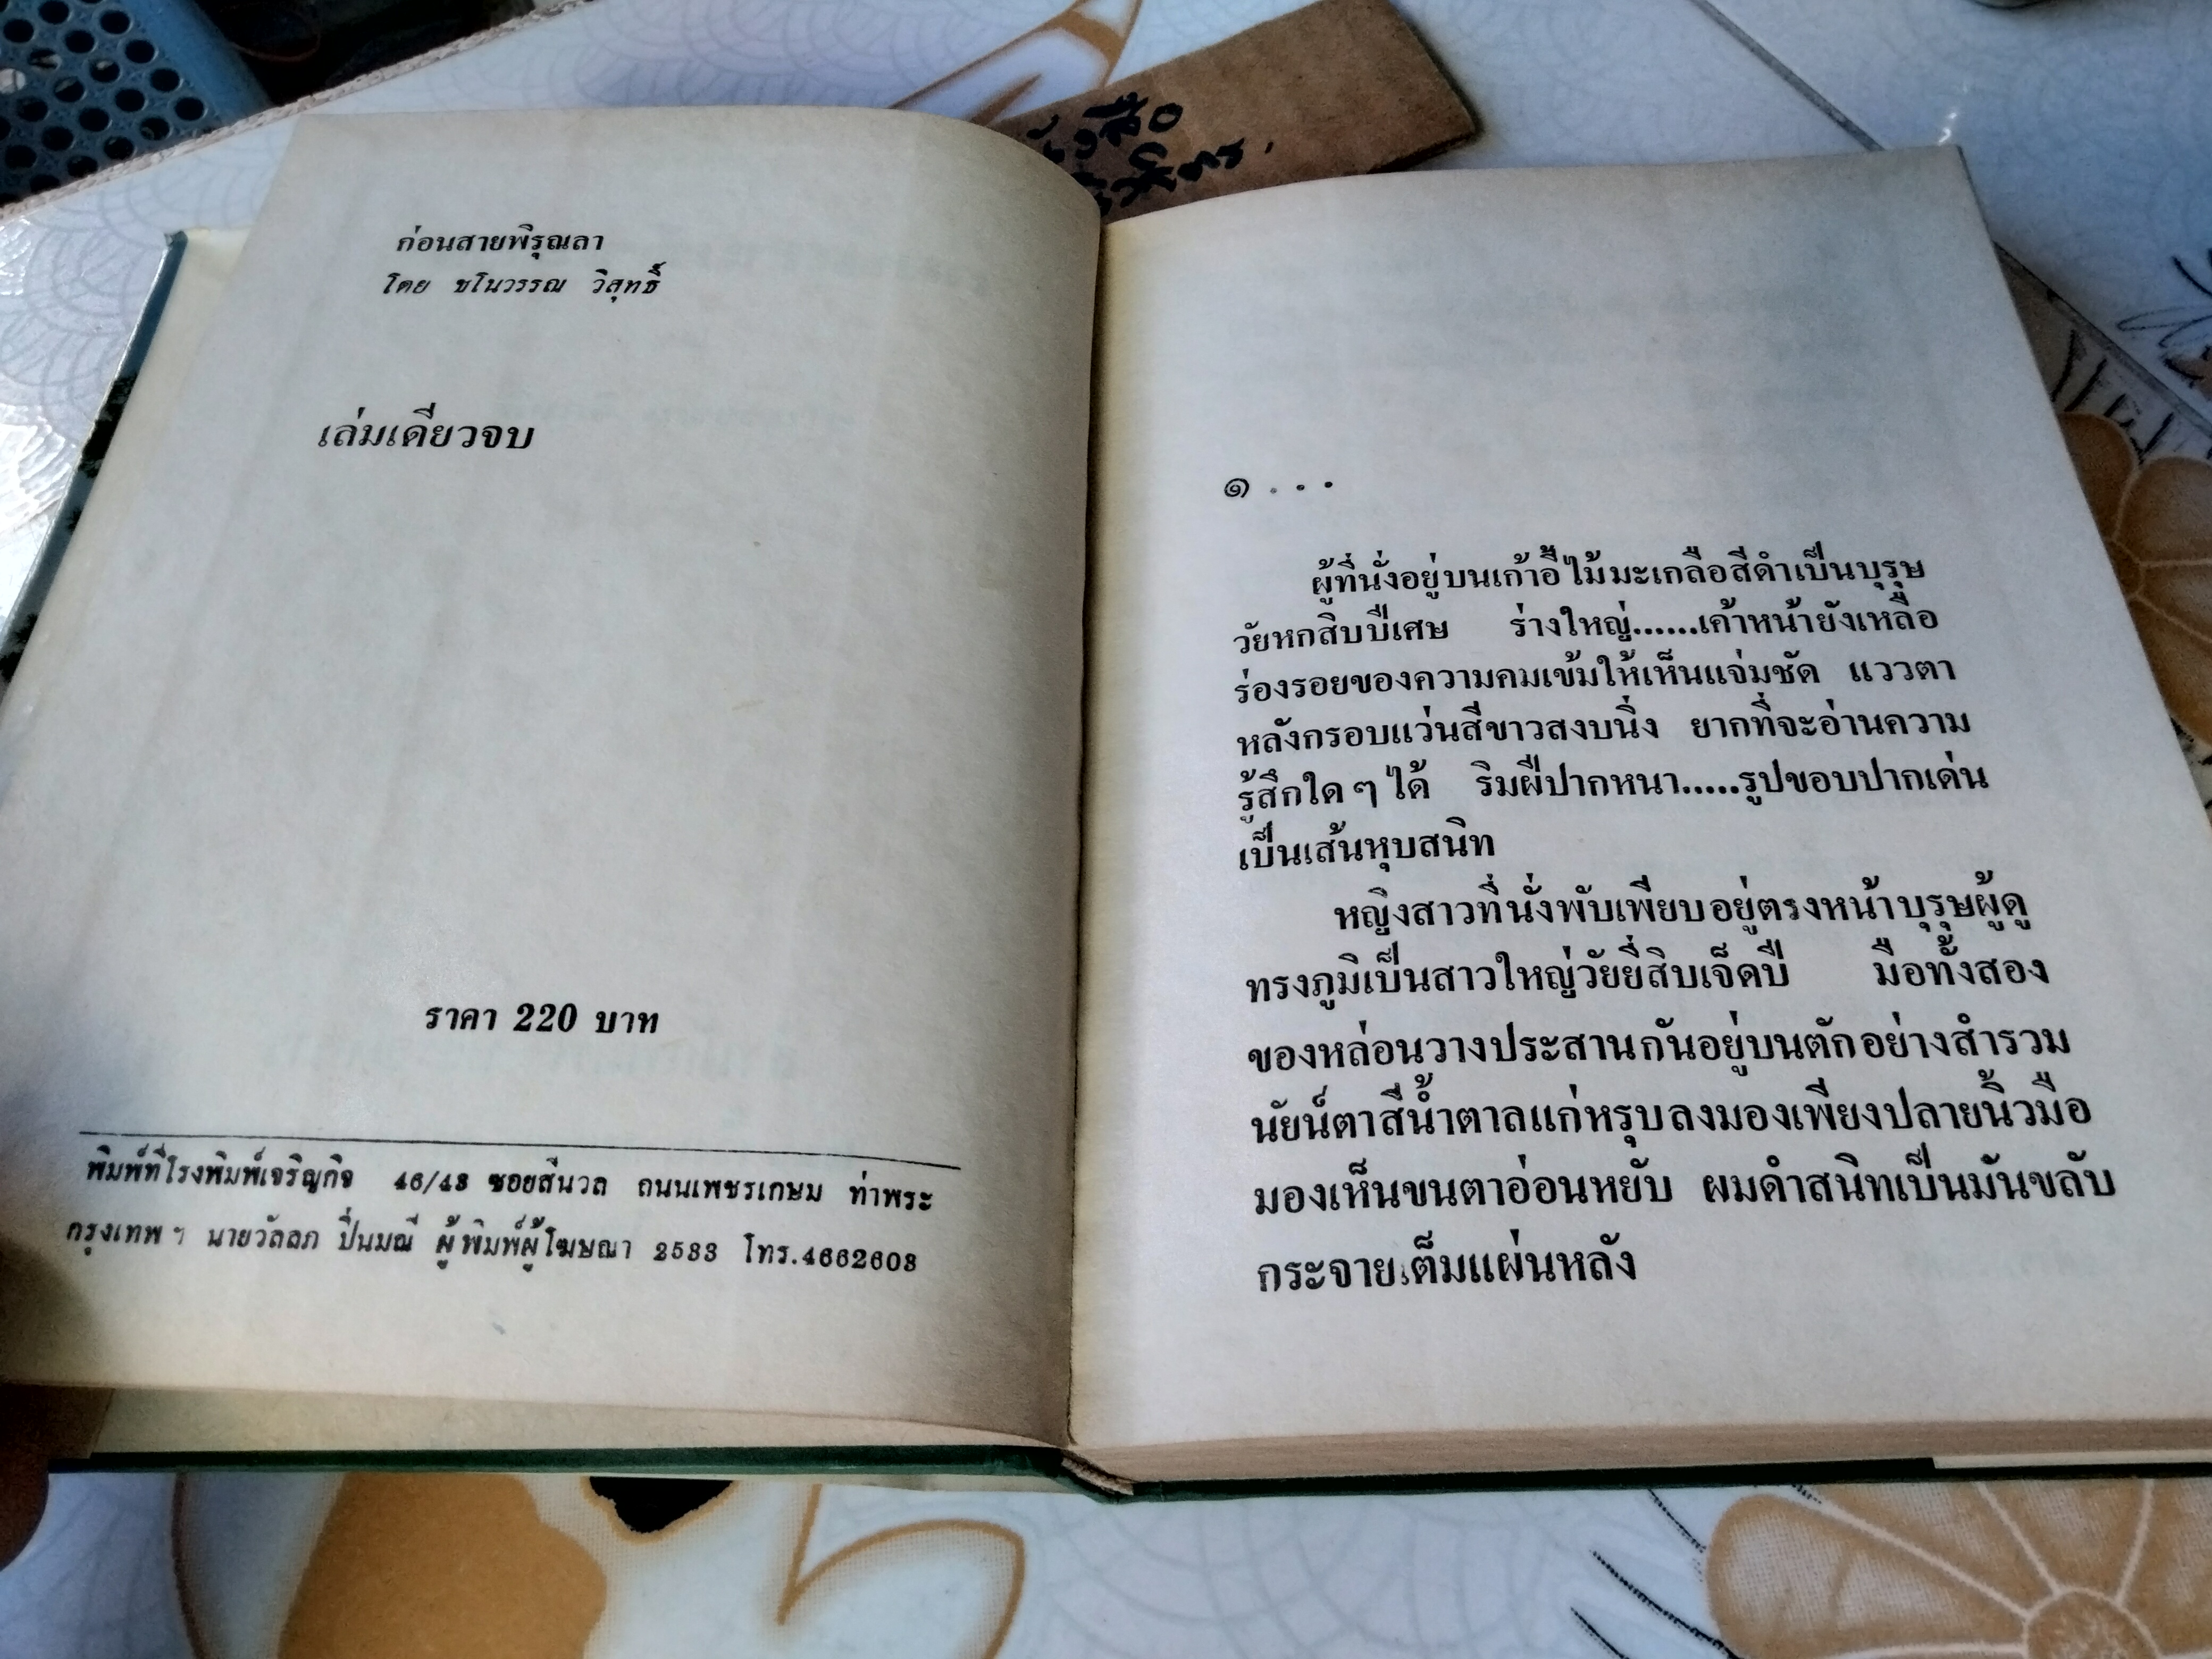 ก่อนสายพิรุณลา
โดย ชโนวรรณ วิสุทธิ์
เล่มเดียวจบ
ราคา 220 บาท
พิมพ์ที่โรงพิมพ์เจริญกิจ 46/43 ซอยสีนวล ถนนเพชรเกษม ท่าพระ
กรุงเทพ ฯ นายวัลลภ ปิ่นมณี ผู้พิมพ์ผู้โฆษณา 2533 โทร.4662603
๑ . . .
ผู้ที่นั่งอยู่บนเก้าอี้ไม้มะเกลือสีดำเป็นบุรุษ
วัยหกสิบปีเศษ ร่างใหญ่......เค้าหน้ายังเหลือ
ร่องรอยของความคมเข้มให้เห็นแจ่มชัด แววตา
หลังกรอบแว่นสีขาวสงบนิ่ง ยากที่จะอ่านความ
รู้สึกใด ๆ ได้ ริมฝีปากหนา.....รูปขอบปากเด่น
เป็นเส้นหุบสนิท
หญิงสาวที่นั่งพับเพียบอยู่ตรงหน้าบุรุษผู้ดู
ทรงภูมิเป็นสาวใหญ่วัยยี่สิบเจ็ดปี มือทั้งสอง
ของหล่อนวางประสานกันอยู่บนตักอย่างสำรวม
นัยน์ตาสีน้ำตาลแก่หรุบลงมองเพียงปลายนิ้วมือ
มองเห็นขนตาอ่อนหยับ ผมดำสนิทเป็นมันขลับ
กระจายเต็มแผ่นหลัง